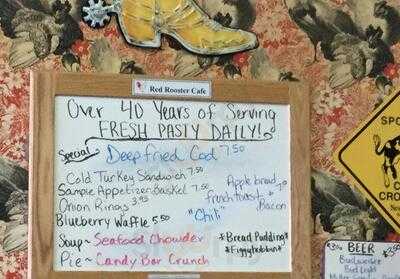 Red Rooster Cafe
Over 40 Years of Serving
FRESH PASTY DAILY!
Special Deep fried Cod 7.50
Cold Turkey Sandwich 7.50
Sample Appetizer Basket 7.50
Onion Rings 3.95
Blueberry Waffle 5.50
Apple bread
french toast
Bacon
"Chili"
Soup~ Seafood Chowder
Pie~ Candy Bar Crunch
*Bread Pudding*
SPO
COW
CROS
NEX
BEER
Budweiser
Bud Light